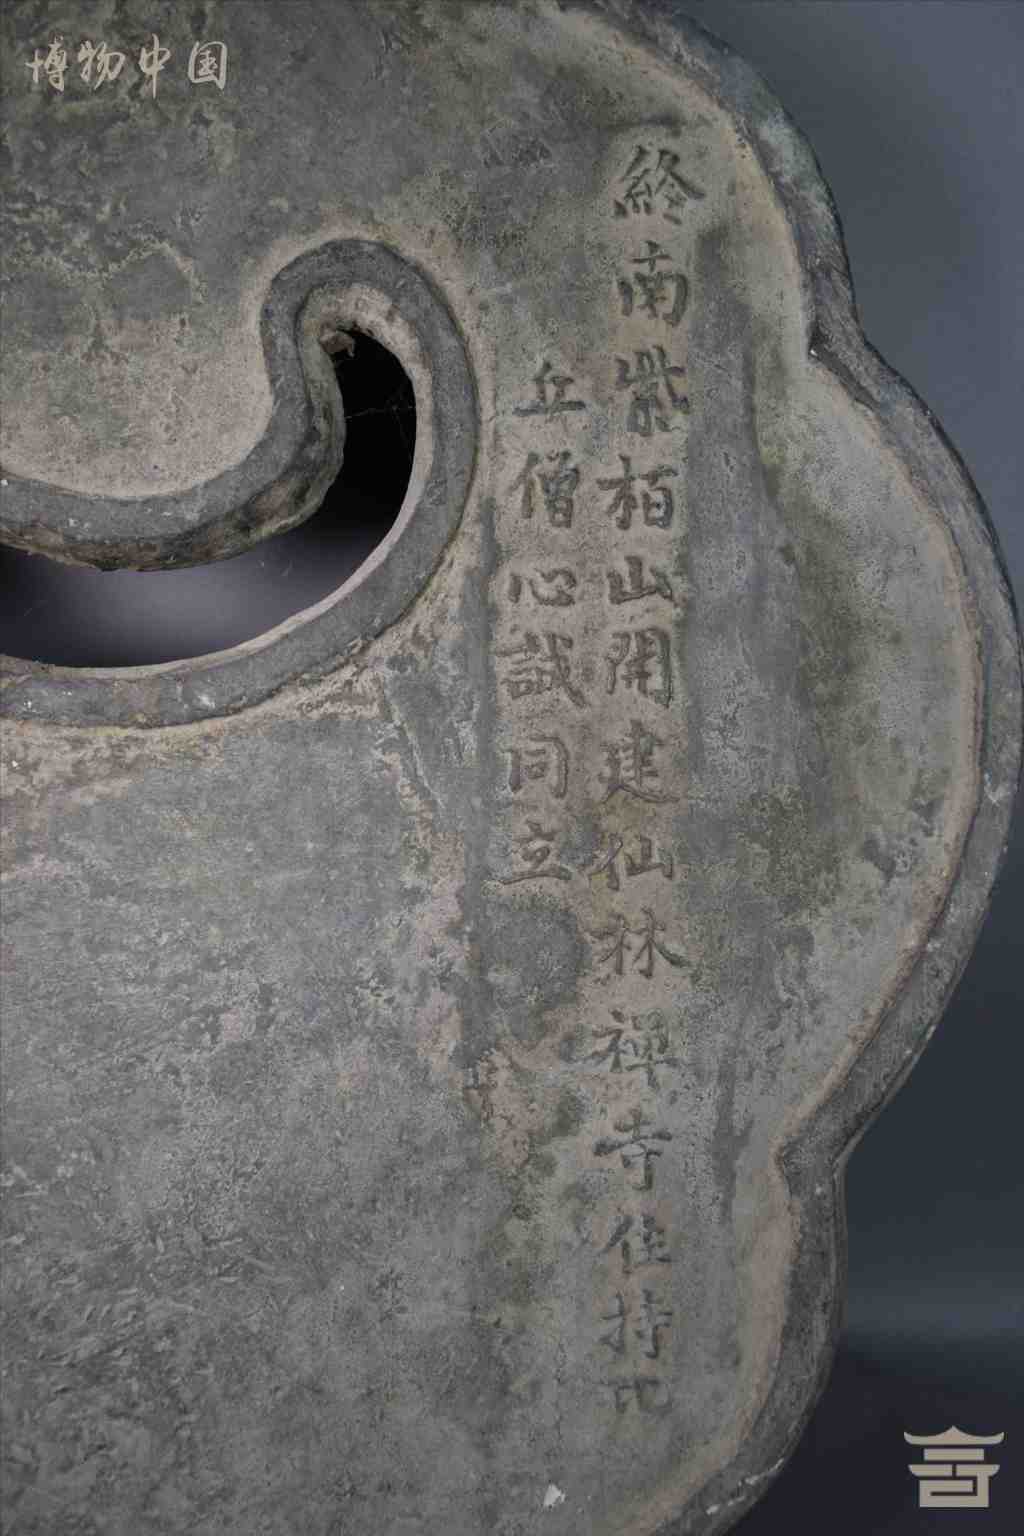 博物中国
終南紫栢山開建仙林禪寺住持比
丘僧心誠同立